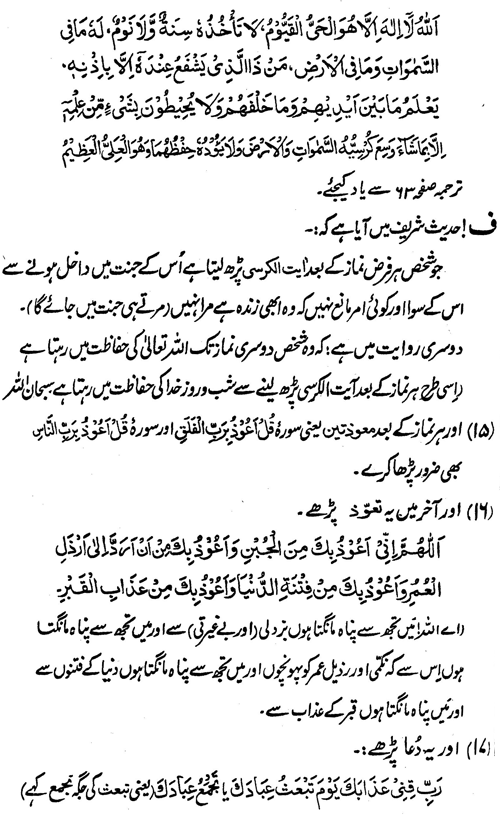 اَللّٰهُ لَآ اِلٰهَ اِلَّا هُوَ الْحَیُّ الْقَیُّوْمُ، لَا تَاْخُذُهٗ سِنَةٌ وَّلَا نَوْمٌ، لَهٗ مَا فِی
السَّمٰوٰتِ وَمَا فِی الْاَرْضِ، مَنْ ذَا الَّذِیْ یَشْفَعُ عِنْدَهٗٓ اِلَّا بِاِذْنِهٖ،
یَعْلَمُ مَا بَیْنَ اَیْدِیْهِمْ وَمَا خَلْفَهُمْ وَلَا یُحِیْطُوْنَ بِشَیْءٍ مِّنْ عِلْمِهٖٓ
اِلَّا بِمَا شَآءَ وَسِعَ كُرْسِیُّهُ السَّمٰوٰتِ وَالْاَرْضَ وَلَا یَئُوْدُهٗ حِفْظُهُمَا وَهُوَ الْعَلِیُّ الْعَظِیْمُ
ترجمہ صفحہ ۶۳ سے یاد کیجئے۔
ف احدیث شریف میں آیا ہے کہ:۔
جو شخص ہر فرض نماز کے بعد آیت الکرسی پڑھ لیتا ہے اُس کے جنت میں داخل ہونے سے
اس کے سوا اور کوئی امر مانع نہیں کہ وہ ابھی زندہ ہے مرا نہیں (مرتے ہی جنت میں جائے گا)۔
دوسری روایت میں ہے: کہ وہ شخص دوسری نماز تک اللہ تعالیٰ کی حفاظت میں رہتا ہے
(اسی طرح ہر نماز کے بعد آیت الکرسی پڑھ لینے سے شب و روز خدا کی حفاظت میں رہتا ہے سبحان اللہ
(۱۵) اور ہر نماز کے بعد معوذتین یعنی سورۂ قُلْ اَعُوْذُ بِرَبِّ الْفَلَقِ اور سورۂ قُلْ اَعُوْذُ بِرَبِّ النَّاسِ
بھی ضرور پڑھا کرے۔
(۱۶) اور آخر میں یہ تعوّذ پڑھے۔
اَللّٰهُمَّ اِنِّیْ اَعُوْذُ بِكَ مِنَ الْجُبْنِ وَاَعُوْذُ بِكَ مِنْ اَنْ اُرَدَّ اِلٰی اَرْذَلِ
الْعُمُرِ وَاَعُوْذُ بِكَ مِنْ فِتْنَةِ الدُّنْیَا وَاَعُوْذُ بِكَ مِنْ عَذَابِ الْقَبْرِ۔
(اے اللہ! میں تجھ سے پناہ مانگتا ہوں بزدلی (اور بے غیرتی) سے اور میں تجھ سے پناہ مانگتا
ہوں اِس سے کہ نکمی اور رذیل عمر کو پہونچوں اور میں تجھ سے پناہ مانگتا ہوں دنیا کے فتنوں سے
اور میں پناہ مانگتا ہوں قبر کے عذاب سے۔
(۱۷) اور یہ دُعا پڑھے:۔
رَبِّ قِنِیْ عَذَابَكَ یَوْمَ تَبْعَثُ عِبَادَكَ یا تَجْمَعُ عِبَادَكَ (یعنی تبعث کی جگہ تجمع کہے)